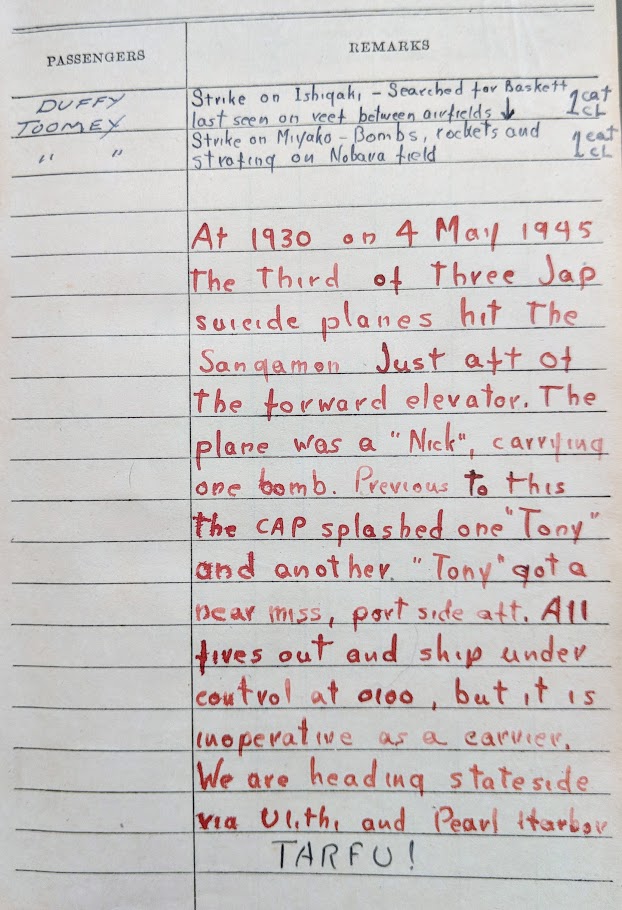 PASSENGERS
REMARKS
DUFFY
TOOMEY
" "
Strike on Ishigaki - Searched for Baskett 1 cat
last seen on reef between airfields ↓ 1 CL
Strike on Miyako - Bombs, rockets and 1 cat
strafing on Nobara field 1 CL
At 1930 on 4 May 1945
the third of three Jap
suicide planes hit the
Sangamon Just aft of
the forward elevator. The
plane was a "Nick", carrying
one bomb. Previous to this
the CAP splashed one "Tony"
and another "Tony" got a
near miss, port side aft. All
fires out and ship under
control at 0100, but it is
inoperative as a carrier.
We are heading stateside
via Ulithi and Pearl Harbor
TARFU!